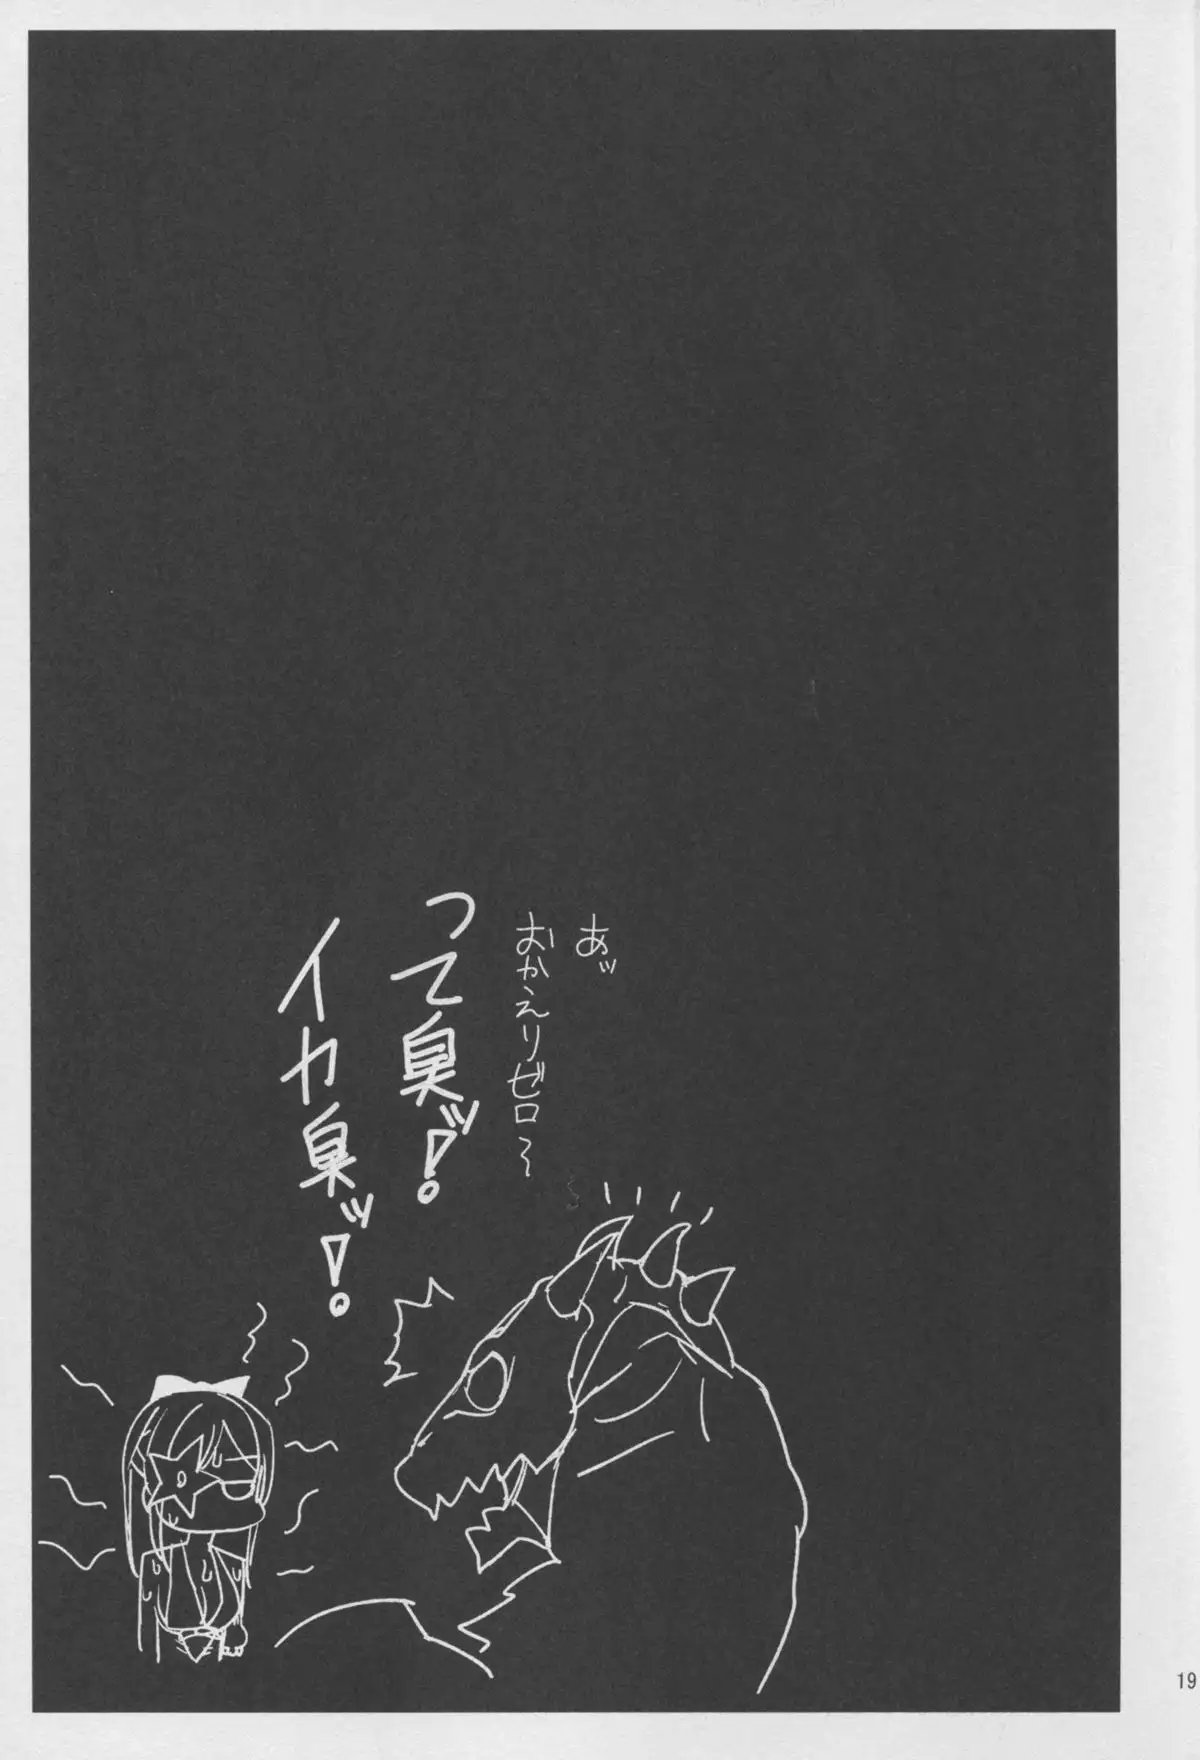 あッ
おかえりゼロ～
って臭ッ!
イカ臭ッ!
19